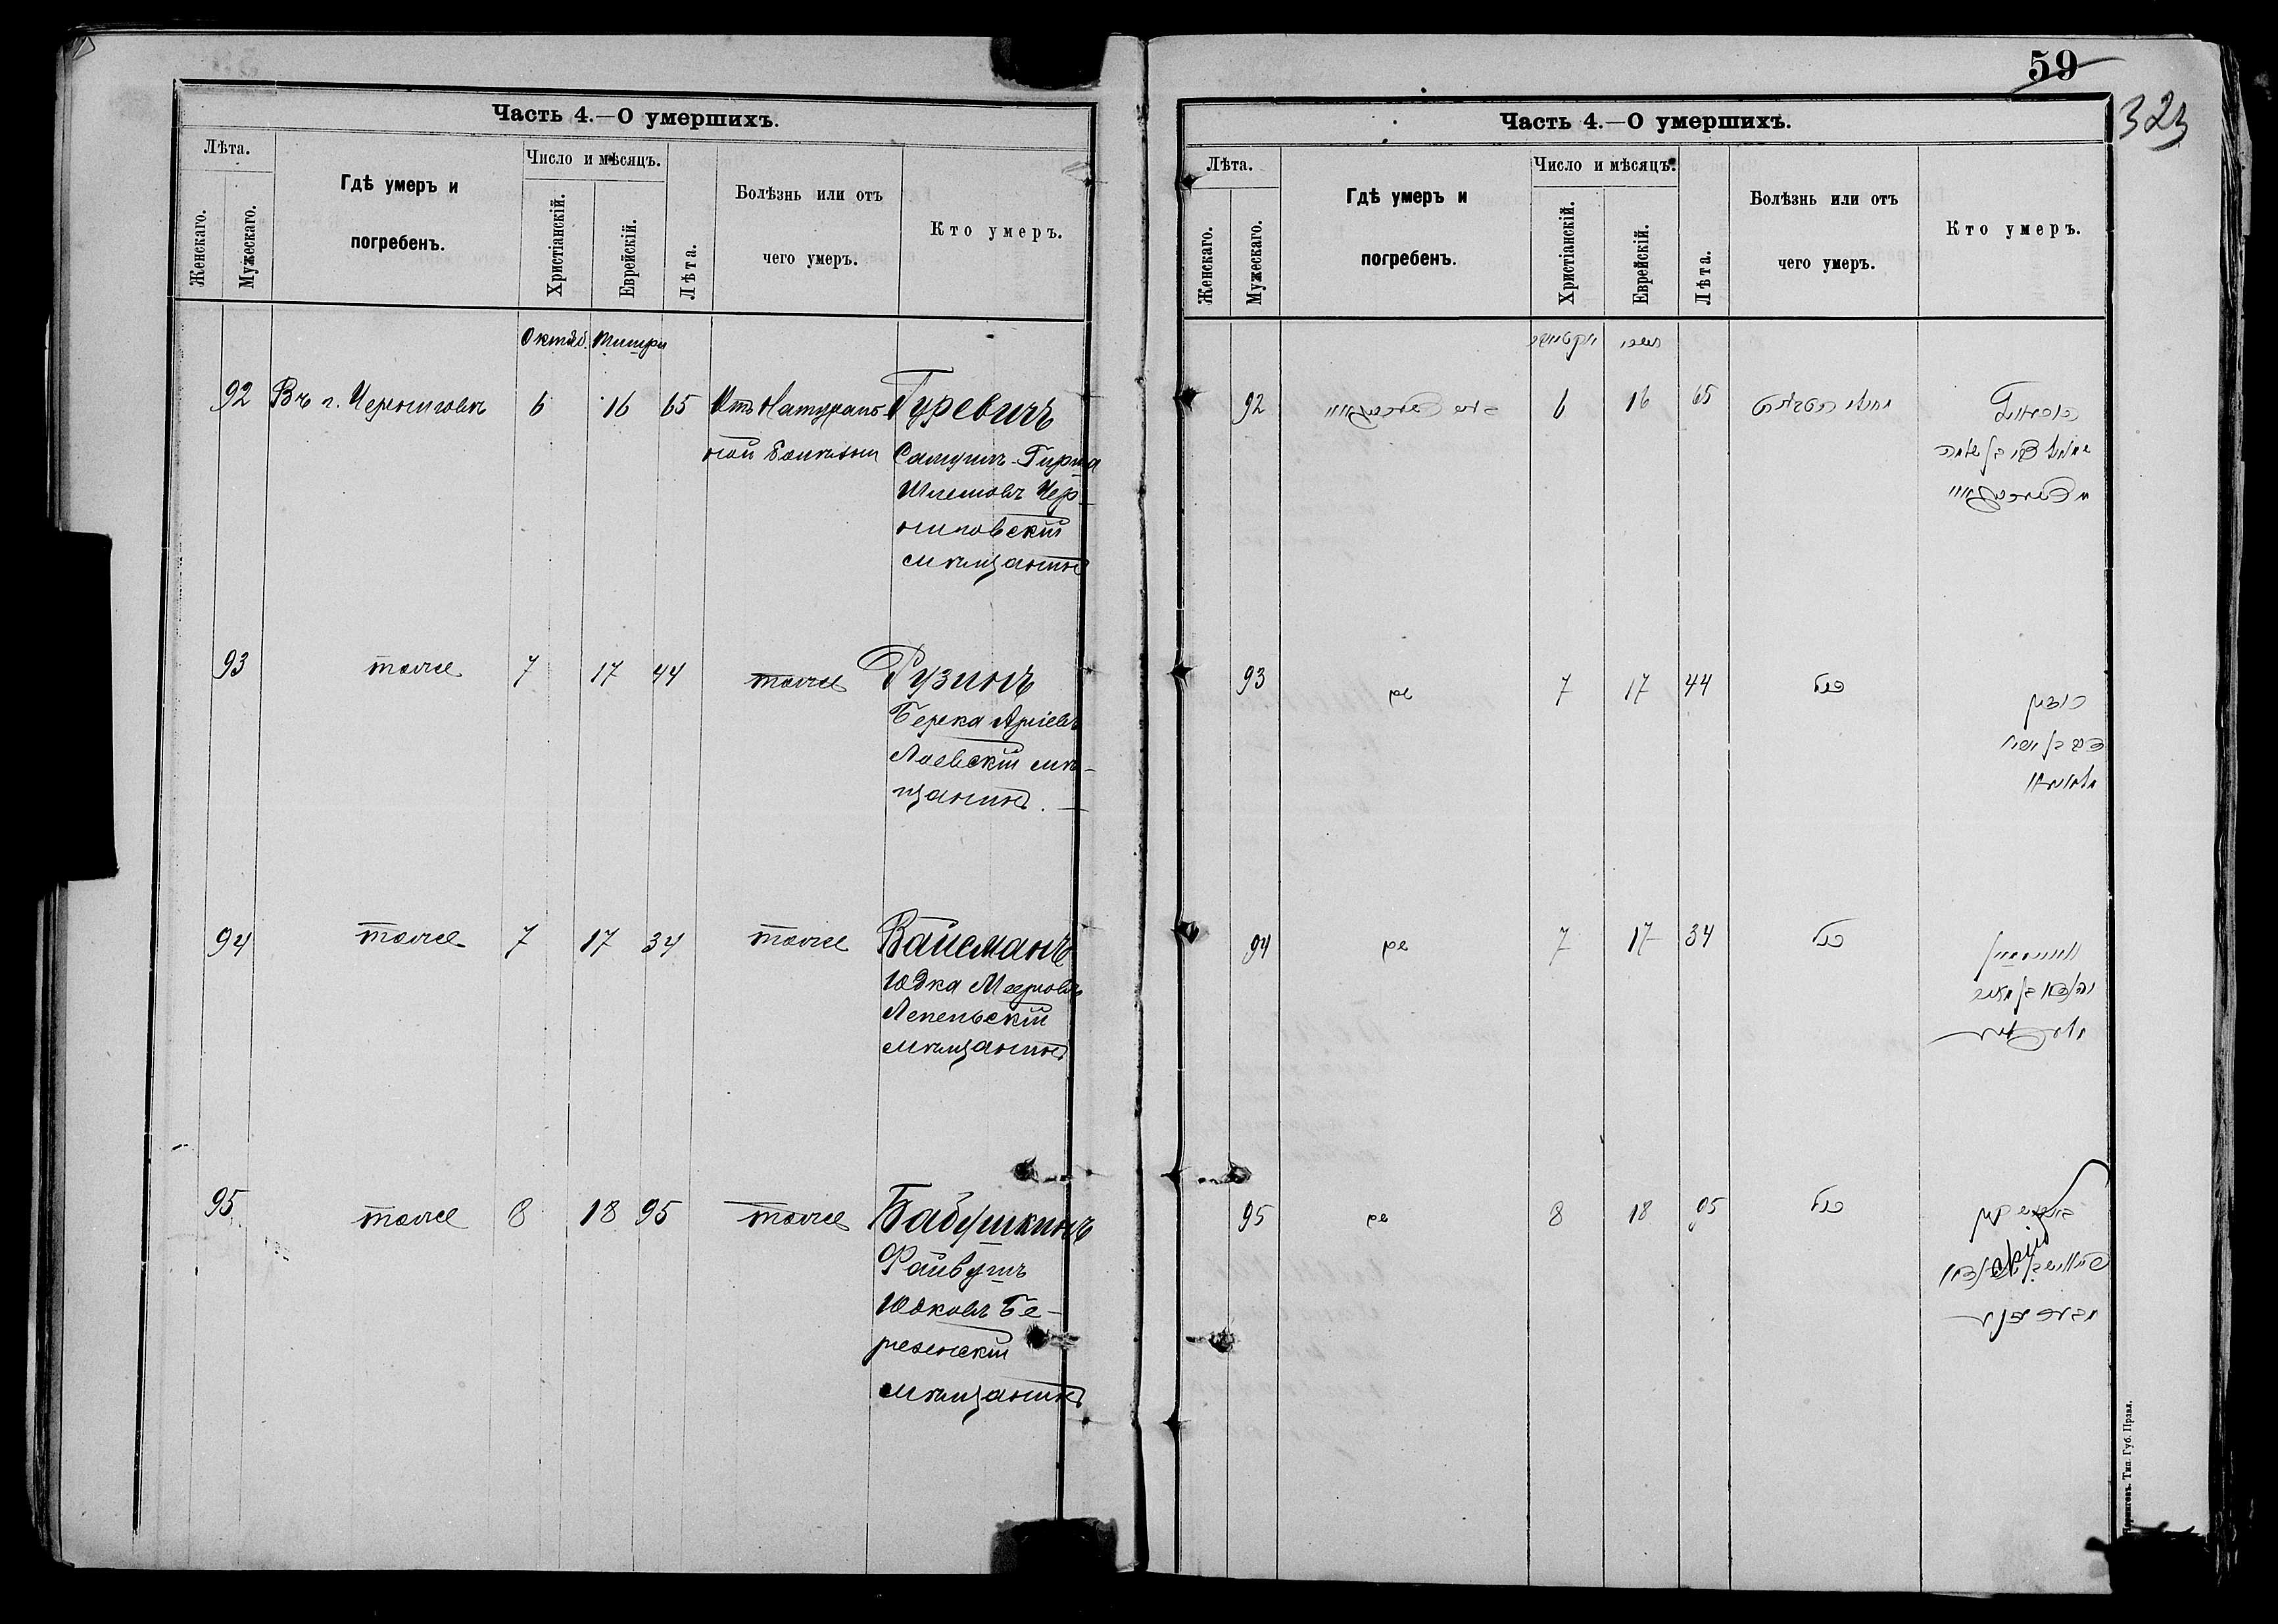 Часть 4.—О умершихъ.
Лѣта.
Женскаго.
Мужескаго.
Гдѣ умеръ и
погребенъ.
Число и мѣсяцъ.
Христіанскій.
Еврейскій.
Лѣта.
Болѣзнь или отъ
чего умеръ.
Кто умеръ.
Октяб. Тишри
92 Въ г. Черниговѣ 6 16 65 Отъ Натураль- Гуревичъ
ной болѣзни Самуилъ-Гирша
Шлемовъ Чер-
ниговскій
мѣщанинъ
93 тоже 7 17 44 тоже Рузинъ
Берка Аріевъ
Лоевскій мѣ-
щанинъ.
94 тоже 7 17 34 тоже Вайсманъ
Юдка Мееровъ
Лепельскій
мѣщанинъ
95 тоже 8 18 95 тоже Бабушкинъ
Файвушъ
Юдковъ Бе-
резенскій
мѣщанинъ
59
323
Часть 4.—О умершихъ.
Лѣта.
Женскаго.
Мужескаго.
Гдѣ умеръ и
погребенъ.
Число и мѣсяцъ.
Христіанскій.
Еврейскій.
Лѣта.
Болѣзнь или отъ
чего умеръ.
Кто умеръ.
תשרי
92 6 16 65
93 שם 7 17 44 כנ״ל
רוזין
94 שם 7 17 34 כנ״ל
95 שם 8 18 95 כנ״ל
Черниговъ. Тип. Губ. Правл.